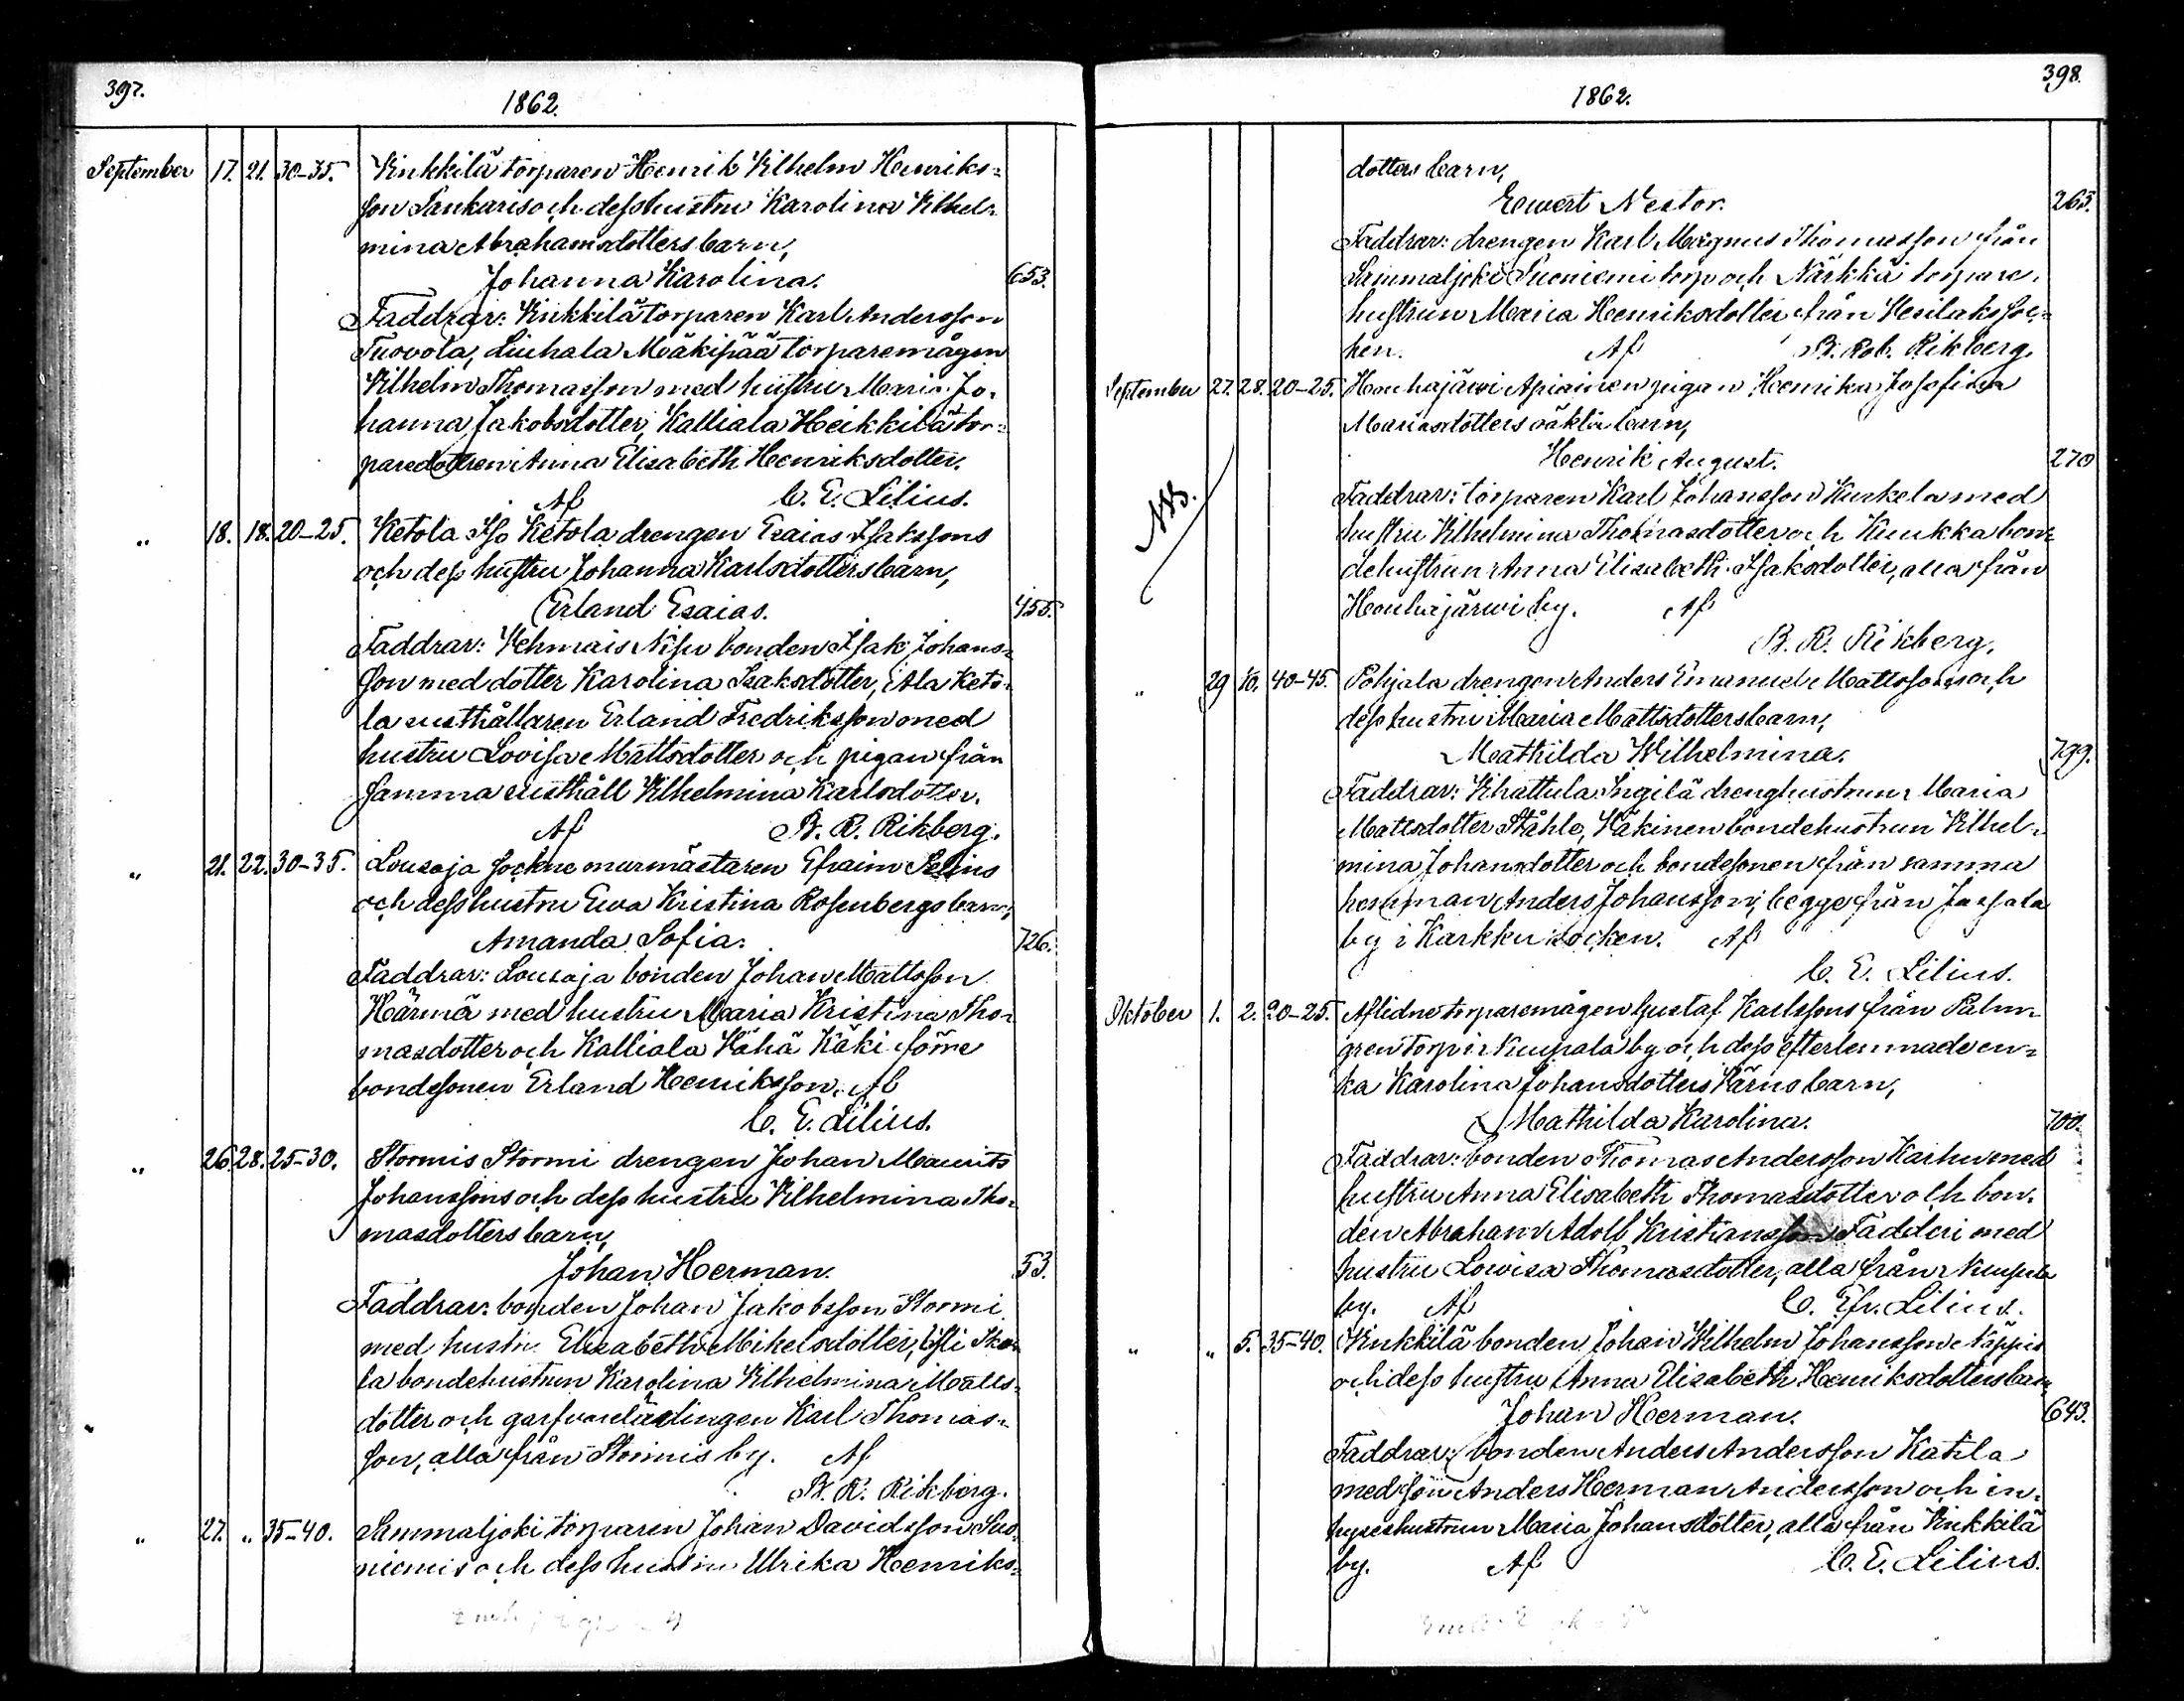 397.
1862.
September 17. 21. 30-35. Kinkkilä torparen Henrik Vilhelm Henriks-
son Sankaris och dess hustru Karolina Vilhel-
mina Abrahamsdotters barn,
Johanna Karolina. 653.
Faddrar: Kinkkilä torparen Karl Andersson
Tuovola, Liuhala Mäkipää torparemågen
Vilhelm Thomasson med hustru Maria Jo-
hanna Jakobsdotter, Kalliala Heikkilä tor-
paredottren Anna Elisabeth Henriksdotter.
Af C. E. Lilius.
" 18. 18. 20-25. Ketola Iso Ketola drengen Esaias Isakssons
och dess hustru Johanna Karlsdotters barn,
Erland Esaias. 455.
Faddrar: Vehmais Nisu bonden Isak Johans-
son med dotter Karolina Isaksdotter, Ala Keto-
la rusthållaren Erland Fredriksson med
hustru Lovisa Mattsdotter och pigan från
samma rusthåll Vilhelmina Karlsdotter.
Af B. R. Rikberg.
" 21. 22. 30-35. Lousaja sockne murmästaren Efraim Selius
och dess hustru Ewa Kristina Rosenbergs barn,
Amanda Sofia. 726.
Faddrar: Lousaja bonden Johan Mattsson
Härmä med hustru Maria Kristina Tho-
masdotter och Kalliala Vähä Käki förre
bondesonen Erland Henriksson. Af
C. E. Lilius.
" 26. 28. 25-30. Stormis Stormi drengen Johan Maurits
Johanssons och dess hustru Vilhelmina Tho-
masdotters barn,
Johan Herman. 53.
Faddrar: bonden Johan Jakobsson Stormi
med hustru Elisabeth Mikelsdotter,
la bondehustrun Karolina Vilhelmina Matts-
dotter och garfvarelärlingen Karl Thomas-
son, alla från Stormis by. Af
B. R. Rikberg.
" 27. " 35-40. Sammaljoki torparen Johan Davidsson Suo-
niemis och dess hustru Ulrika Henriks-
398.
1862.
dotters barn,
Ewert Nestor. 265.
Faddrar: drengen Karl Magnus Thomasson från
Sammaljoki Suoniemi torp och Närkkä torpare-
hustrun Maria Henriksdotter från Vesilaks soc-
ken. Af B. Rob. Rikberg.
September 27. 28. 20-25. Houhajärwi Apiainen pigan Henrika Josefina
Mariasdotters oäkta barn,
Henrik August. 270
NB.
Faddrar: torparen Karl Johansson Kurkela med
hustru Vilhelmina Thomasdotter och Kuukka bon-
dehustrun Anna Elisabeth Isaksdotter, alla från
Houhajärwi by. Af
B. R. Rikberg.
" 29 10. 40-45. Pohjala drengen Anders Emanuel Mattssons och
dess hustru Maria Mattsdotters barn,
Mathilda Wilhelmina. 799.
Faddrar: Vihattula Ingilä drenghustrun Maria
Mattsdotter Ståhle, Käkinen bondehustrun Vilhel-
mina Johansdotter och bondesonen från samma
hemman Anders Johansson, begge från Jassala
by i Karkku socken. Af
C. E. Lilius.
Oktober 1. 2. 20-25. Aflidne torparemågen Gustaf Karlssons från Palm-
gren torp i Nuupala by och dess efterlemnade en-
ka Karolina Johansdotters Färns barn,
Mathilda Karolina. 700.
Faddrar: bonden Thomas Andersson Karhu med
hustru Anna Elisabeth Thomasdotter och bon-
den Abraham Adolf Kristiansson Fädderi med
hustru Lowisa Thomasdotter, alla från Nuupala
by. Af C. Efr. Lilius.
" " 5. 35-40. Kinkkilä bonden Johan Wilhelm Johansson Näppis
och dess hustru Anna Elisabeth Henriksdotters barn
Johan Herman. 643.
Faddrar: bonden Anders Andersson Katila
med son Anders Herman Andersson och in-
hyseshustrun Maria Johansdotter, alla från Kinkkilä
by. Af C. E. Lilius.